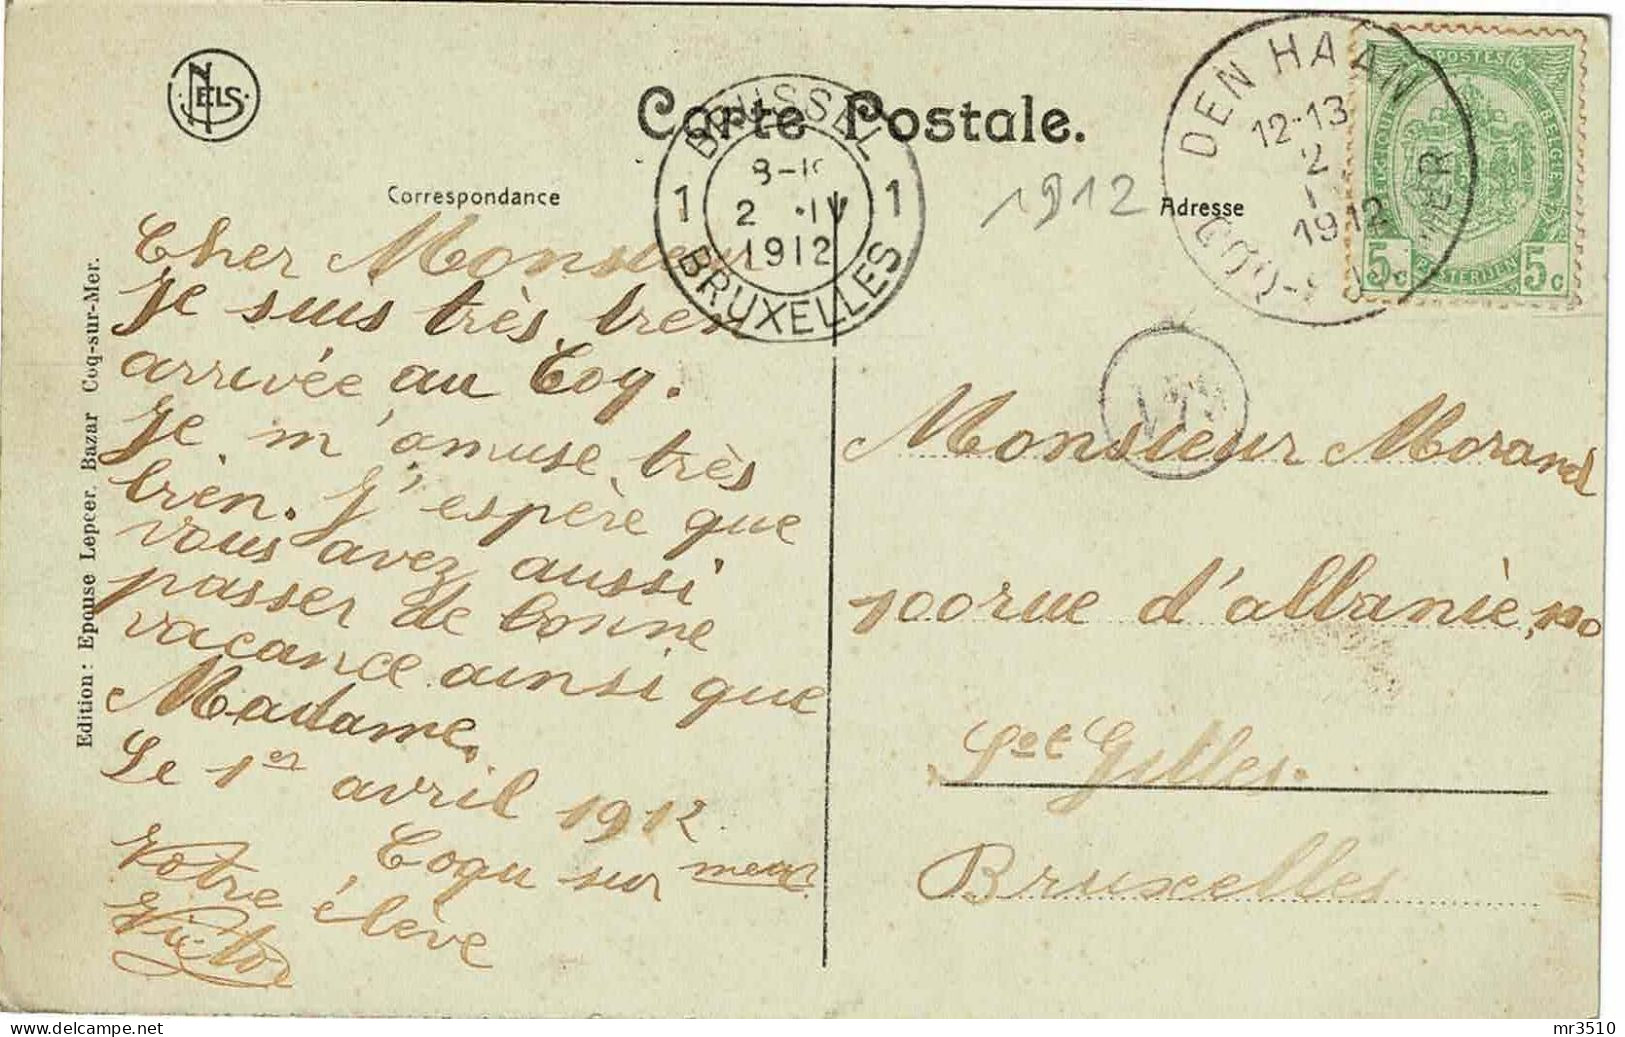 NELS
Carte Postale.
BRUSSEL
1 1
2 IV
1912
BRUXELLES
DEN HAAN
12-13
2
1912
COQ-S-MER
POSTES
BELGIQUE
BELGIË
POSTERIJEN
5c 5c
1912
Correspondance
Adresse
Cher Monsieur
Je suis très bien
arrivée au Coq.
Je m'amuse très
bien. J'espère que
vous avez aussi
passer de bonne
vacance ainsi que
Madame.
Le 1er avril 1912
Coqu sur mer
Votre élève
Victor
Monsieur Morand
100 rue d'albanie, 100
St Gilles.
Bruxelles
Edition : Epouse Lepcer. Bazar Coq-sur-Mer.
mr3510